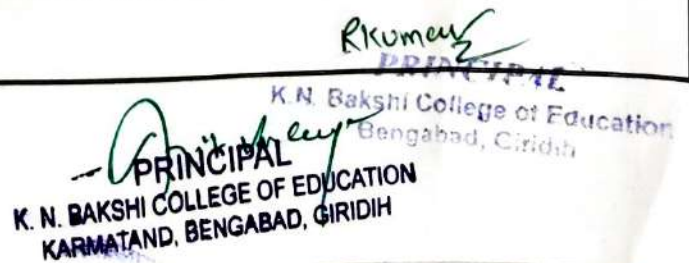 RKumar
PRINCIPAL
K.N. Bakshi College of Education
Bengabad, Giridih
PRINCIPAL
K. N. BAKSHI COLLEGE OF EDUCATION
KARMATAND, BENGABAD, GIRIDIH